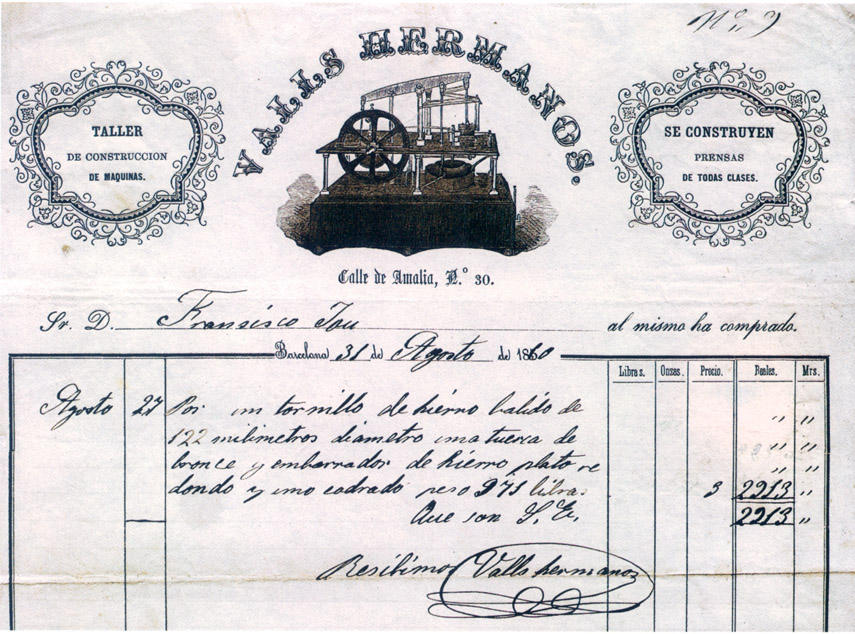 Nº 9
VALLS HERMANOS.
TALLER
DE CONSTRUCCION
DE MAQUINAS.
SE CONSTRUYEN
PRENSAS
DE TODAS CLASES.
Calle de Amalia, N.º 30.
Sr. D. Fransisco Jou al mismo ha comprado.
Barcelona 31 de Agosto de 1860
Libras. Onzas. Precio. Reales. Mrs.
Agosto 27 Por un tornillo de hierro batido de " "
122 milimetros diametro una tuerca de " "
bronce y embarrador de hierro plato re " "
dondo y uno cadrado peso 971 libras 3 2913 "
Que son S. E. 2913 "
Resibimos Valls hermanos